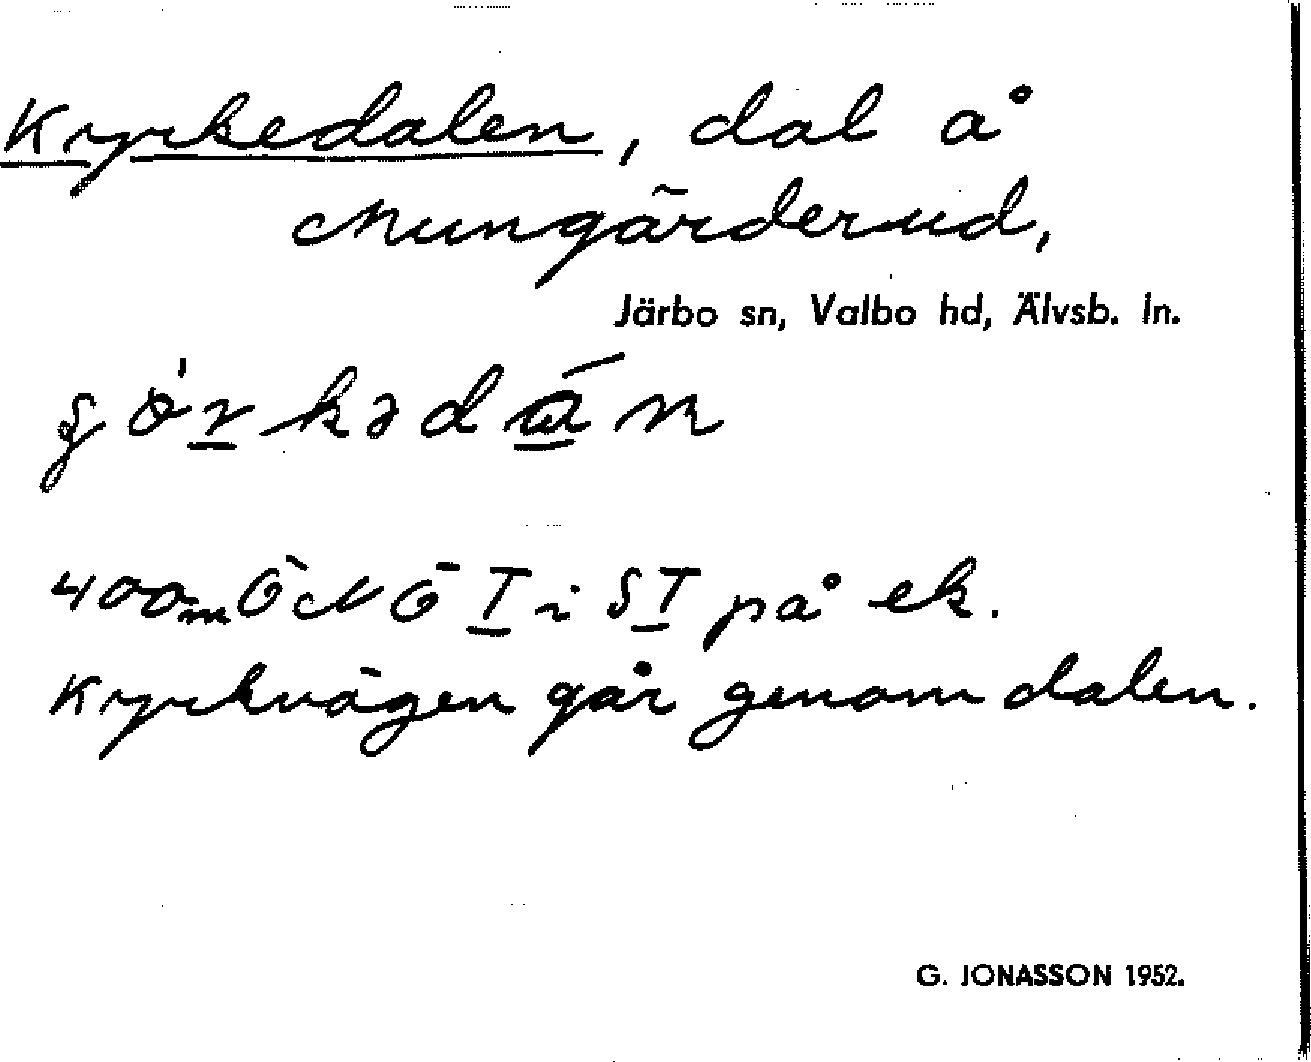 Kyrkedalen, dal å
Mungärderud,
Järbo sn, Valbo hd, Älvsb. ln.
400m ÖNÖ I i SI på ek.
Kyrkvägen går genom dalen.
G. JONASSON 1952.